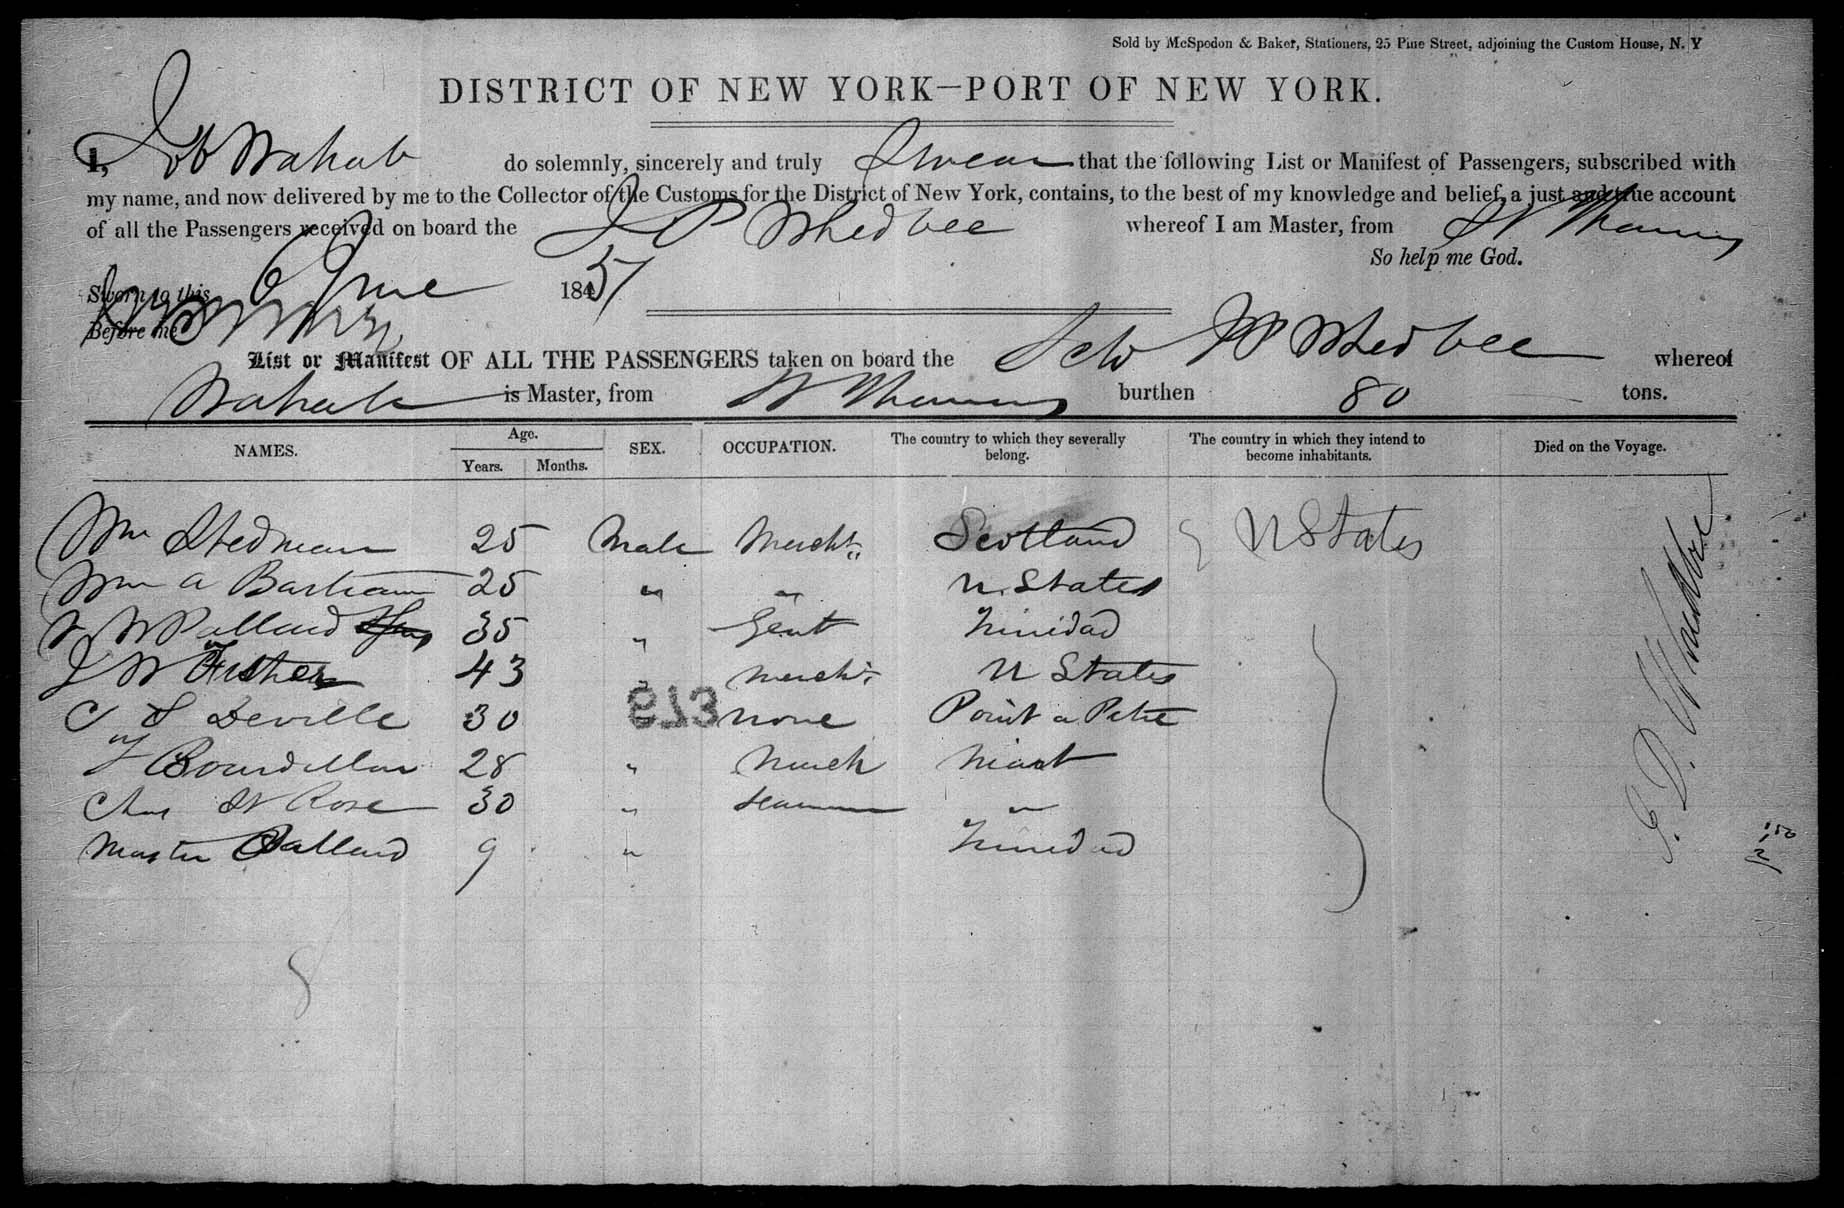 Sold by McSpedon & Baker, Stationers, 25 Pine Street, adjoining the Custom House, N. Y
DISTRICT OF NEW YORK—PORT OF NEW YORK.
I, Job Wahab do solemnly, sincerely and truly Swear that the following List or Manifest of Passengers, subscribed with
my name, and now delivered by me to the Collector of the Customs for the District of New York, contains, to the best of my knowledge and belief, a just and true account
of all the Passengers received on board the J P Whedbee whereof I am Master, from St Thomas
So help me God.
Sworn to this 6 June 1851
Before me
List or Manifest OF ALL THE PASSENGERS taken on board the Schr J P Whedbee whereof
Wahab is Master, from St Thomas burthen 80 tons.
NAMES. Age. Years. Months. SEX. OCCUPATION. The country to which they severally belong. The country in which they intend to become inhabitants. Died on the Voyage.
Wm Stedman 25 Male Mercht Scotland U States
Wm A Bartram 25 " " U. States
W Pallard 35 " Gent Trinidad
J W Fisher 43 " mercht U States
C S Deville 30 none Point a Petre
Bourdillon 28 " Merch
Chas St Rose 30 " seaman "
Master Pallard 9 " Trinidad
813
8